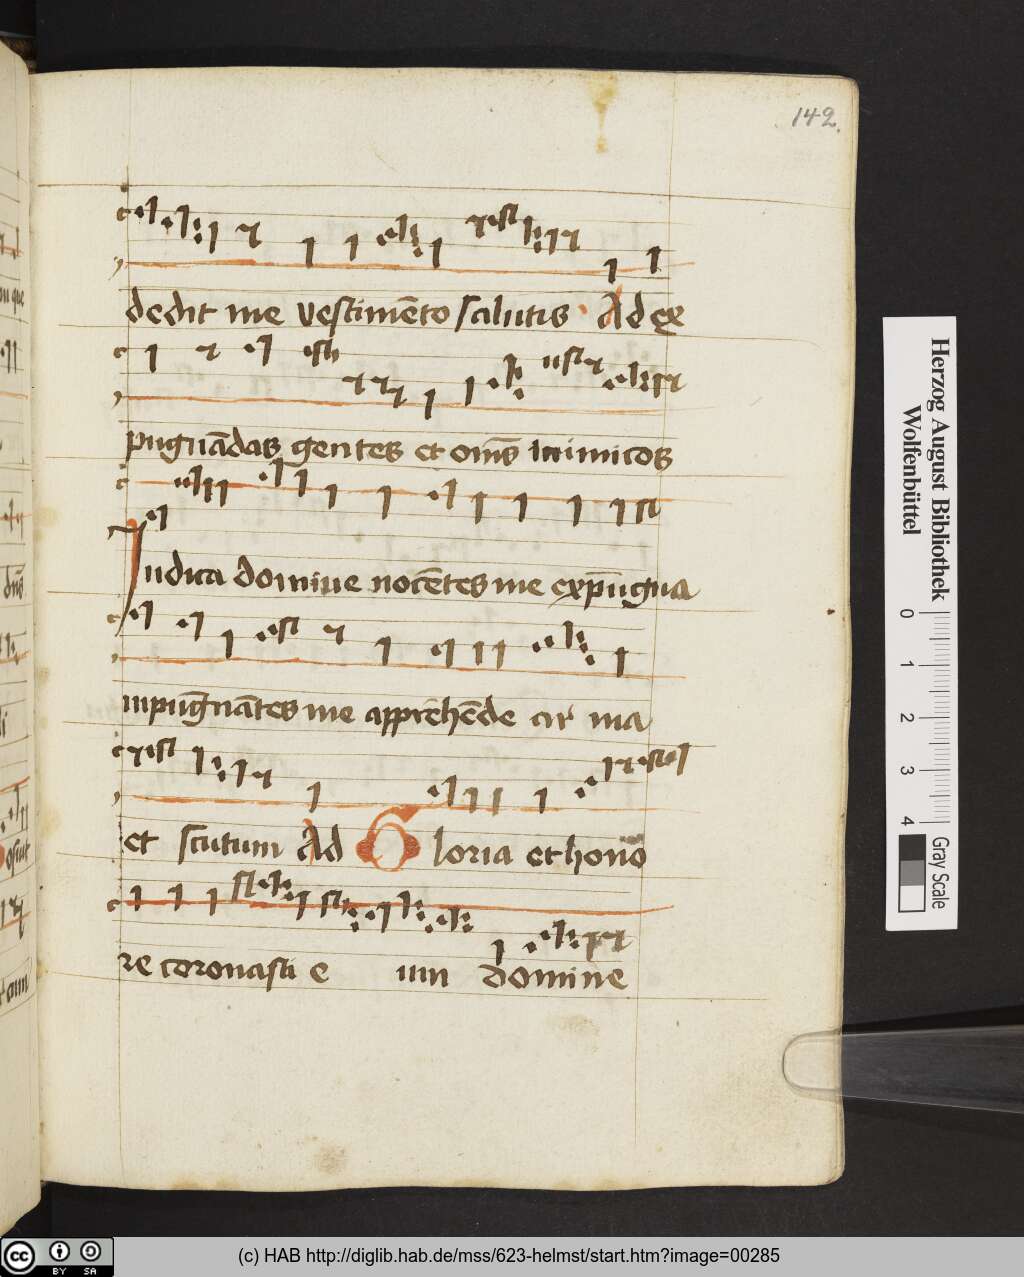 142.
dedit me vestimēto salutis Ad ex
pugnādas gentes et om̄s inimicos
Iudica domine nocētes me expūgna
inpūgnātes me apprēhēde ar ma
et scutum Ad Gloria et hono
re coronasti e um domine
Herzog August Bibliothek
Wolfenbüttel
0 1 2 3 4
Gray Scale
cc BY SA
(c) HAB http://diglib.hab.de/mss/623-helmst/start.htm?image=00285